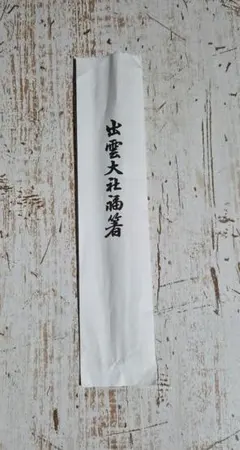 出雲大社福箸